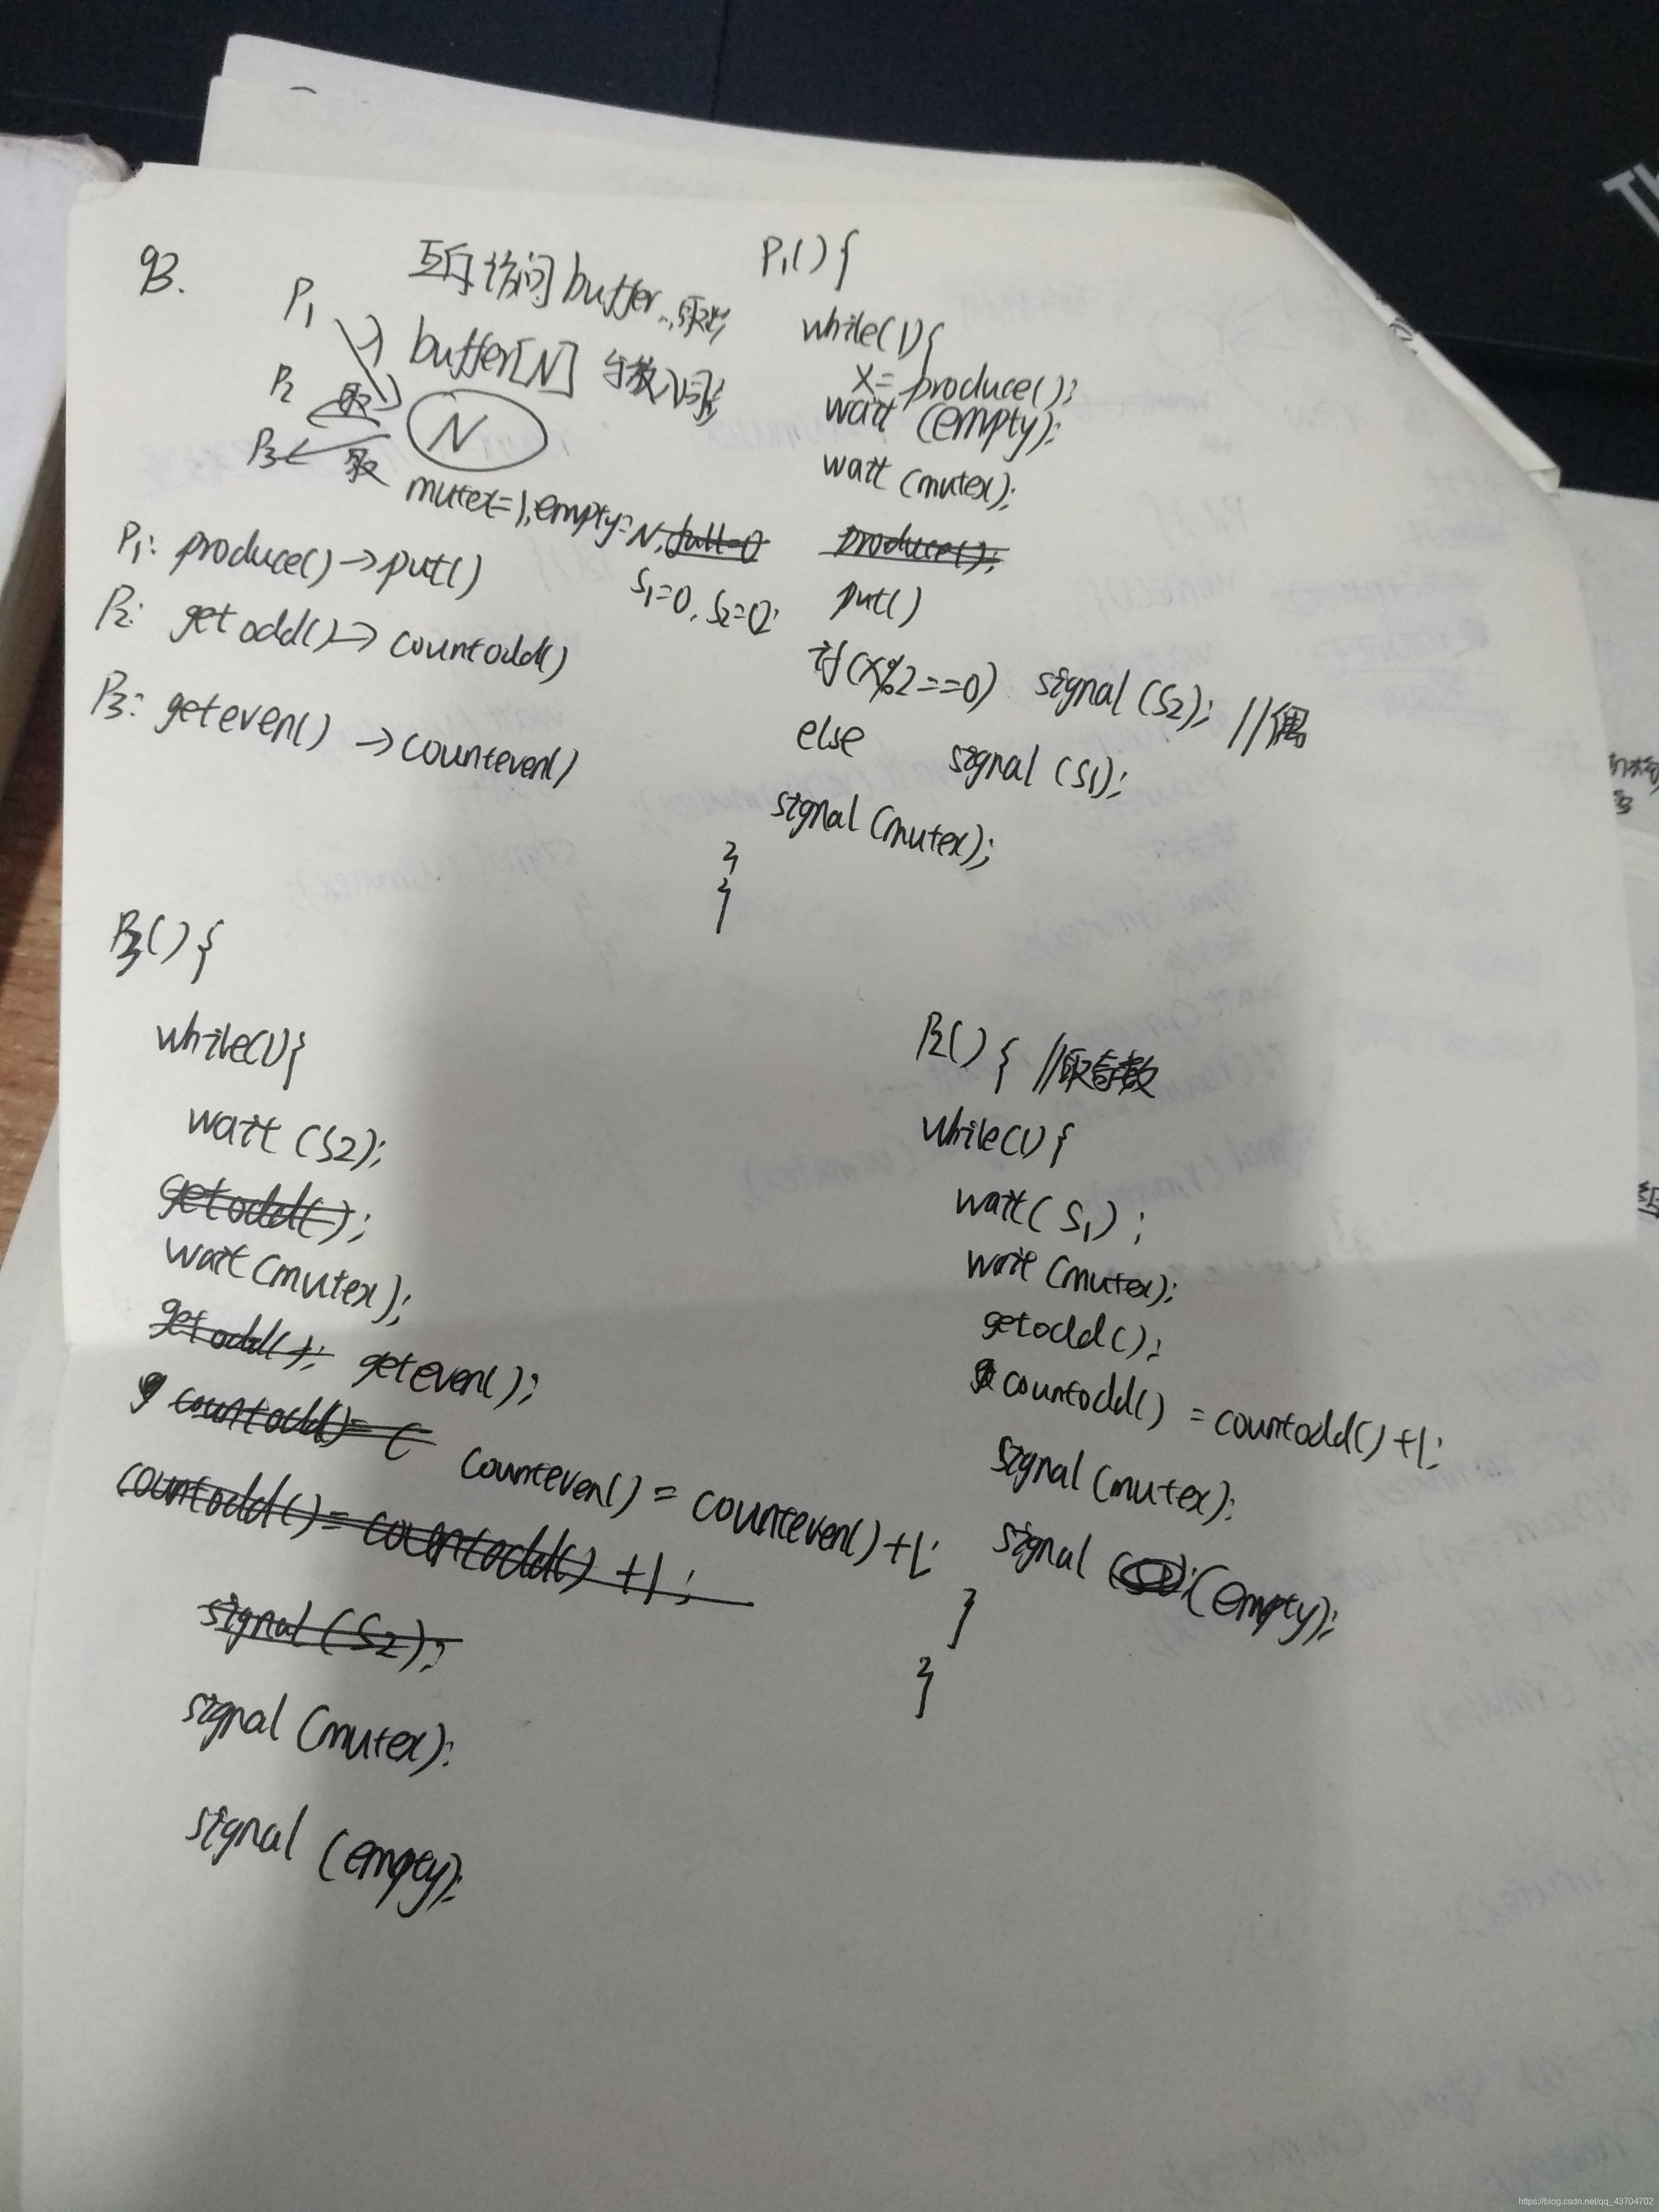 93.
互斥访问buffer
P1
buffer[N]
P2 取
N
P3 取
mutex=1,empty=N,full=0
S1=0,S2=0;
P1: produce()→put()
P2: getodd()→countodd()
P3: geteven()→counteven()
P1(){
while(1){
x=produce();
wait(empty);
wait(mutex);
produce();
put()
if(x%2==0) signal(S2); //偶
else signal(S1);
signal(mutex);
}
}
P3(){
while(1){
wait(S2);
getodd();
wait(mutex);
getodd(); geteven();
countodd()=c counteven()=counteven()+1;
countodd()=countodd()+1;
signal(S2);
signal(mutex);
signal(empty);
P2(){ //取奇数
while(1){
wait(S1);
wait(mutex);
getodd();
countodd()=countodd()+1;
signal(mutex);
signal(empty);
}
}
Th
https://blog.csdn.net/qq_43704702